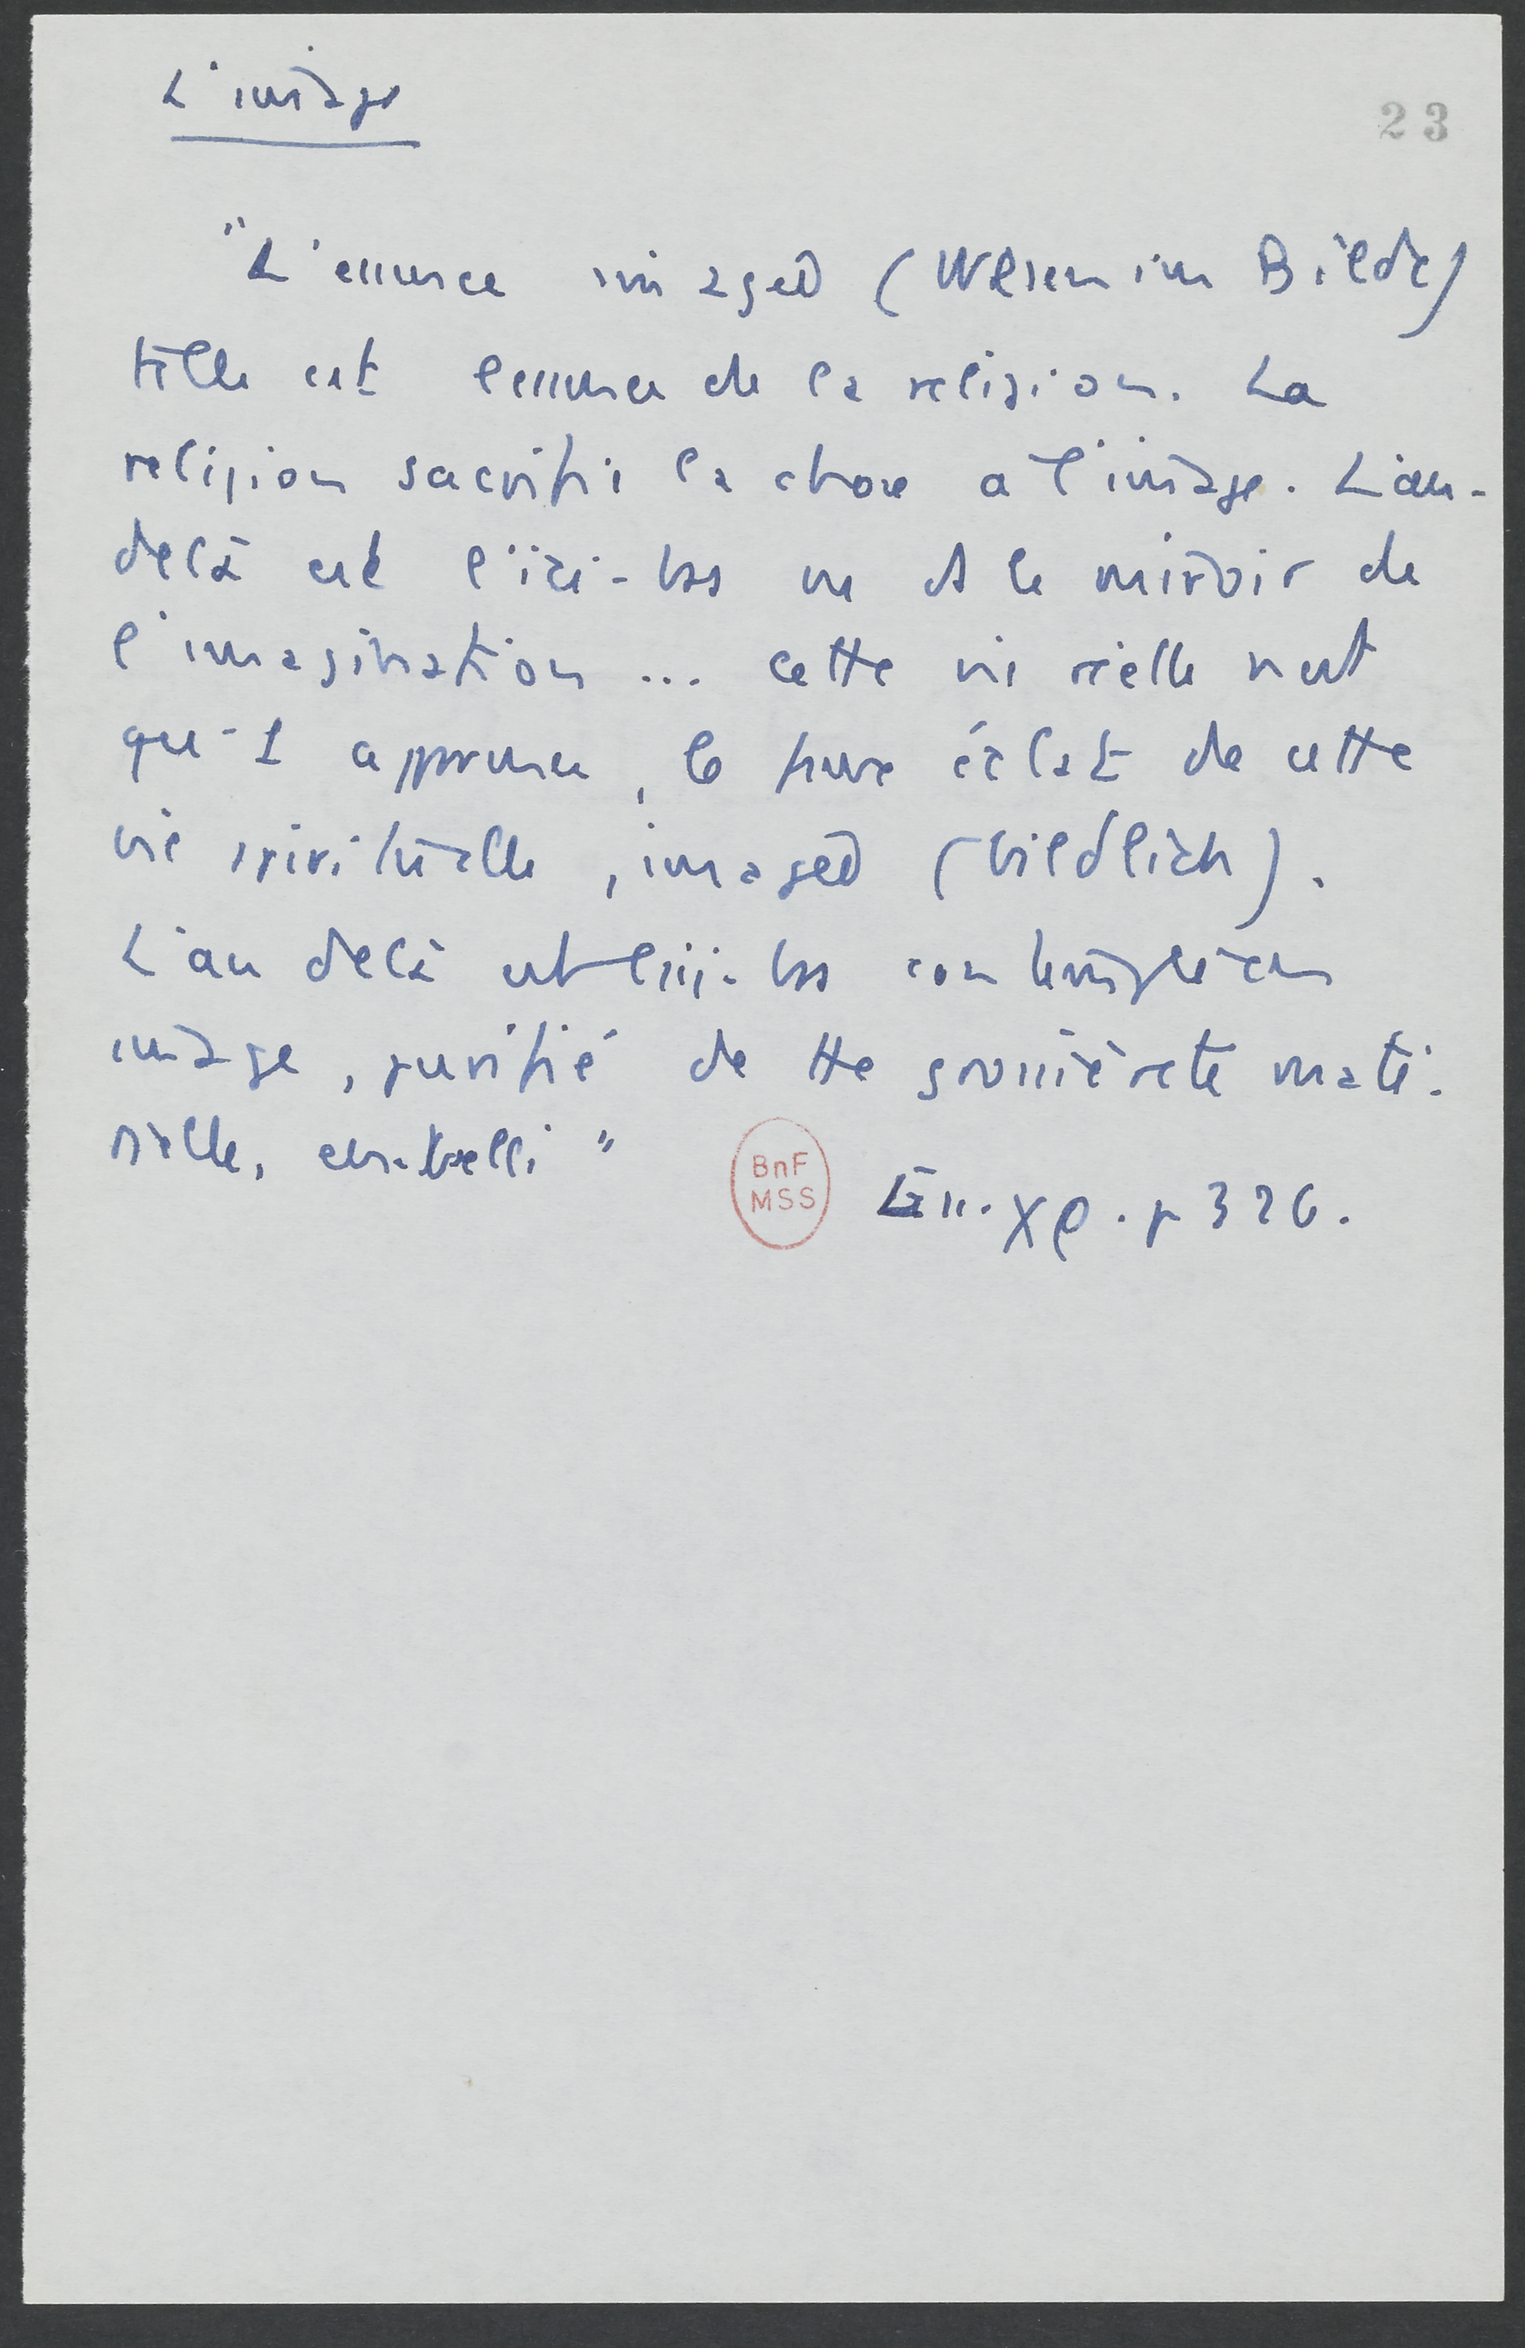 L'image
23
"L'essence imagée (Wesen im Bilde)
telle est l'essence de la religion. La
religion sacrifie la chose à l'image. L'au-
delà est l'ici-bas vu ds le miroir de
l'imagination ... cette vie réelle n'est
que l'apparence, le pure éclat de cette
vie spirituelle, imagée (bildlich).
L'au delà est l'ici-bas contemplé en
image, purifié de tte grossièreté maté-
rielle, embelli"
BnF
MSS
Ess. Xρ. p 326.